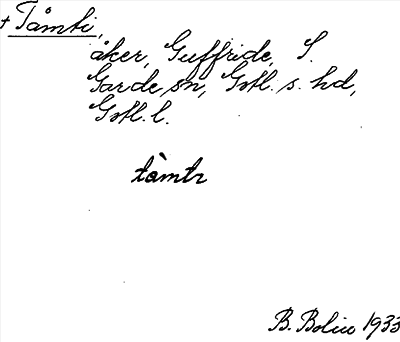 + Tåmti,
åker, Guffride, S.
Garde sn, Gotl. s. hd,
Gotl. l.
tàmtɩ
B. Bolin 1933